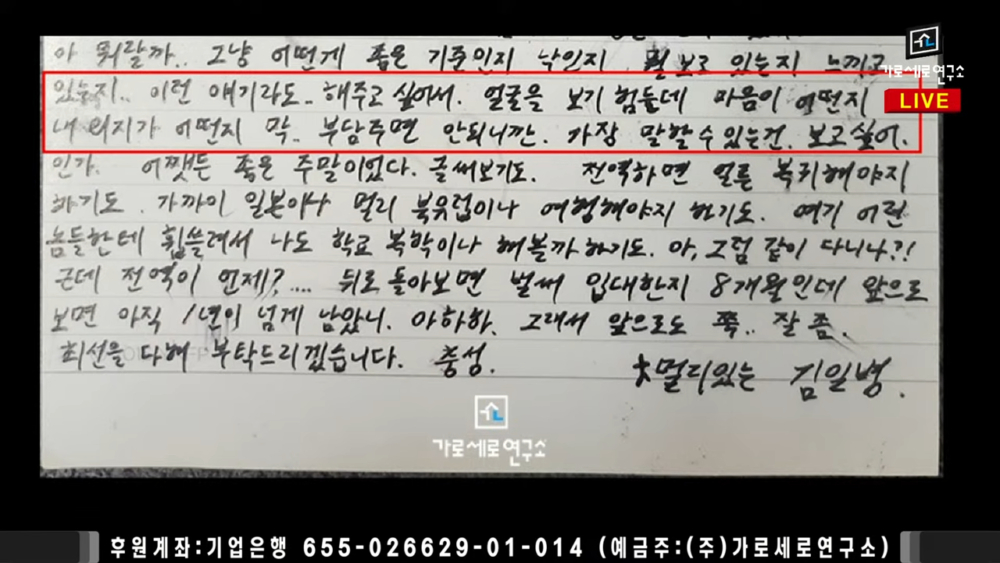 아 뭐랄까.. 그냥 어떻게 좋은 기준인지 낙인지 뭘 보고 있는지 느끼고
있는지.. 이런 얘기라도.. 해주고 싶어서. 얼굴을 보기 힘들데 마음이 어떤지
내 의지가 어떤지 막.. 부담주면 안되니깐. 가장 말할 수 있는건. 보고싶어.
인가. 어쨋든 좋은 주말이었다. 글써보기도. 전역하면 얼른 복귀해야지
하기도. 가까이 일본이나 멀리 북유럽이나 여행해야지 하기도. 여기 어린
놈들한테 휩쓸려서 나도 학교 복학이나 해볼까 하기도. 아, 그럼 같이 다니나?!
근데 전역이 언제?.... 뒤로 돌아보면 벌써 입대한지 8개월인데 앞으로
보면 아직 1년이 넘게 남았니. 아하하. 그래서 앞으로도 쭉.. 잘 좀.
최선을 다해 부탁드리겠습니다. 충성.
멀리있는 김일병.
가로세로연구소
LIVE
가로세로연구소
후원계좌:기업은행 655-026629-01-014 (예금주:(주)가로세로연구소)